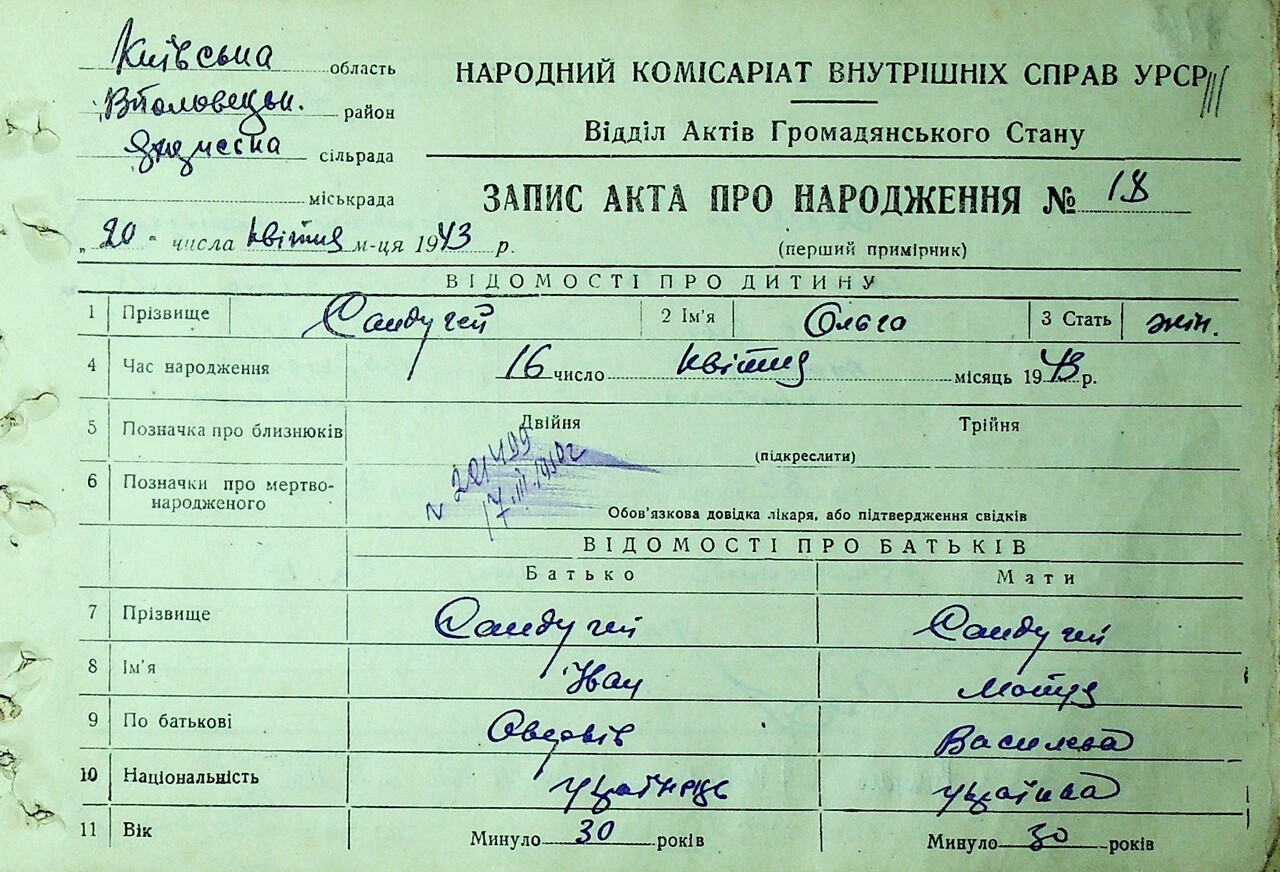 Київська область
район
сільрада
міськрада
„ 20 " числа квітня м-ця 1943 р.
НАРОДНИЙ КОМІСАРІАТ ВНУТРІШНІХ СПРАВ УРСР
Відділ Актів Громадянського Стану
ЗАПИС АКТА ПРО НАРОДЖЕННЯ № 18
(перший примірник)
ВІДОМОСТІ ПРО ДИТИНУ
1 Прізвище Сандугей 2 Ім'я Ольга 3 Стать жін.
4 Час народження 16 число квітня місяць 1943 р.
5 Позначка про близнюків Двійня Трійня
(підкреслити)
6 Позначки про мертво-
народженого
Обов'язкова довідка лікаря, або підтвердження свідків
ВІДОМОСТІ ПРО БАТЬКІВ
Батько Мати
7 Прізвище Сандугей Сандугей
8 Ім'я Іван Мотря
9 По батькові Василева
10 Національність українець українка
11 Вік Минуло 30 років Минуло 30 років